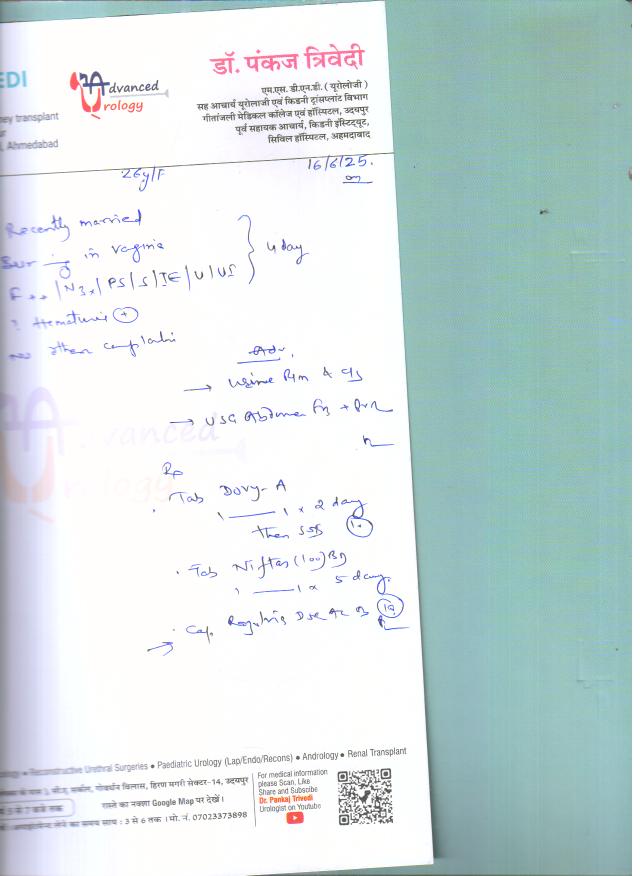 EDI
Advanced
Urology
डॉ. पंकज त्रिवेदी
एम.एस. डी.एन.बी. ( यूरोलोजी )
ney transplant
सह आचार्य यूरोलाजी एवं किडनी ट्रांसप्लांट विभाग
ur
गीतांजली मेडिकल कॉलेज एवं हॉस्पिटल, उदयपुर
, Ahmedabad
पूर्व सहायक आचार्य, किडनी इंस्टिट्यूट,
सिविल हॉस्पिटल, अहमदाबाद
26y/F
16/6/25.
Recently married
in vagina
4 day
F++ / N3x / PS / S / IE / U / UI
? Hematuria +
no other complaints
Adv.
→ Urine R/m & c/s
→ USG Abdomen + PVR
Rx
Tab
1 — 1 x 2 day
then SOS 10
Tab Niftas (100) BD
1 — 1 x 5 day
Cap. DSR 10
Reconstructive Urethral Surgeries ● Paediatric Urology (Lap/Endo/Recons) ● Andrology ● Renal Transplant
गोवर्धन विलास, हिरण मगरी सेक्टर-14, उदयपुर
रास्ते का नक्शा Google Map पर देखें।
का समय साय : 3 से 6 तक । मो. नं. 07023373898
For medical information
please Scan, Like
Share and Subscibe
Dr. Pankaj Trivedi
Urologist on Youtube